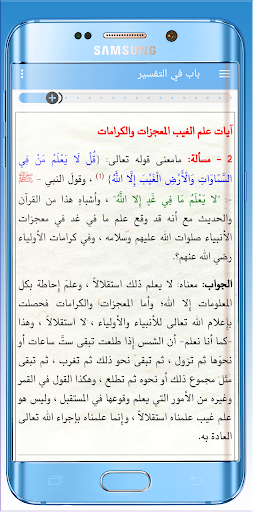 SAMSUNG
باب في التفسير
آيات علم الغيب المعجزات والكرامات
2 - مسألة: مامعنى قوله تعالى: {قُل لَا يَعْلَمُ مَنْ فِي
السَّمَاوَاتِ وَالْأَرْضِ الْغَيْبَ إِلَّا اللَّهُ} (1) ، وقول النبي - ﷺ
-: "لا يَعْلَمُ مَا فِي غَدٍ إِلا اللَّهُ" ، وأشباه هذا من القرآن
والحديث مع أنه قد وقع علم ما في غد في معجزات
الأنبياء صلوات الله عليهم وسلامه ، وفي كرامات الأولياء
رضي الله عنهم؟.
الجواب: معناه: لا يعلم ذلك استقلالاً ، وعلمَ إِحاطة بكل
المعلومات إِلا الله؛ وأما المعجزاتُ والكراماتُ فحصلت
بإعلام الله تعالى للأنبياء والأولياء ، لا استقلالاً ، وهذا
-كما أنا نعلم- أن الشمس إِذا طلعت تبقى ستَّ ساعات أو
نحوَها ثم تزول ، ثم تبقى نحو ذلك ثم تغرب ، ثم تبقى
مثل مجموع ذلك أو نحوه ثم تطلع ، وهكذا القول في القمر
وغيره من الأمور التي يعلم وقوعها في المستقبل ، وليس هو
علم غيب علمناه استقلالاً ، وإنما علمناه بإجراء الله تعالى
العادة به.